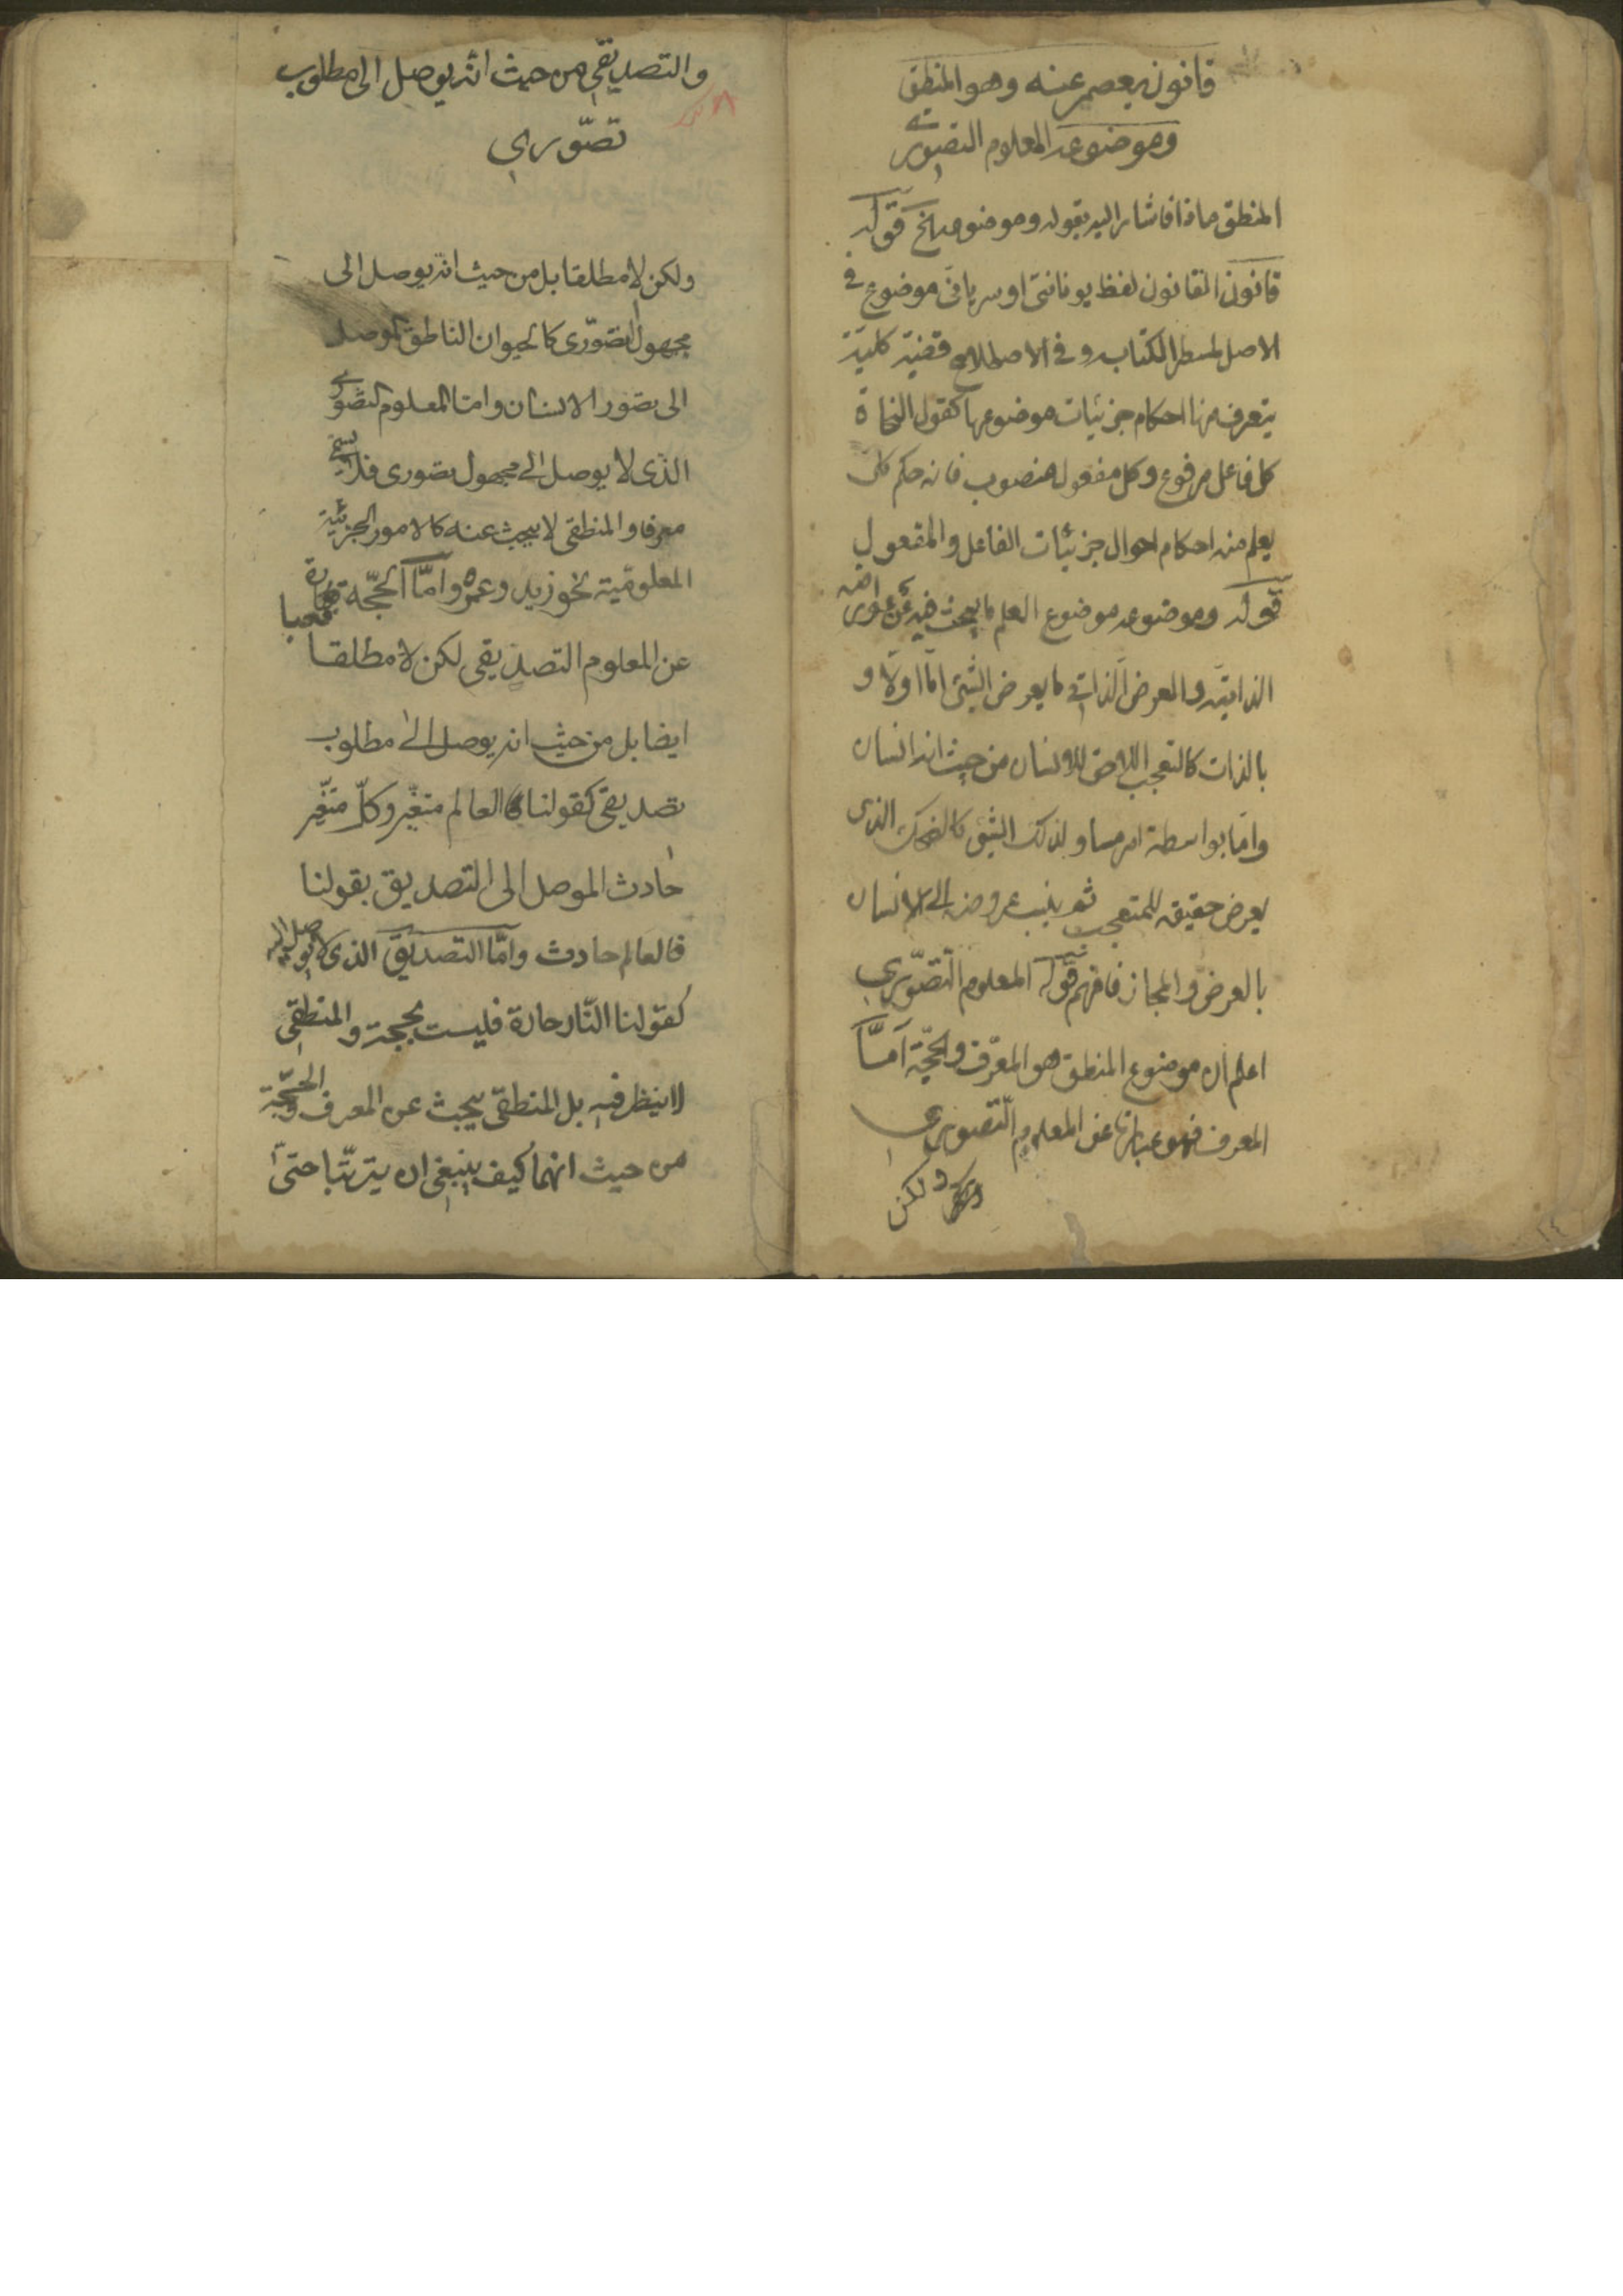 قانون يعصم عنه وهو المنطق
وموضوعه المعلوم التصورى
المنطق ماذا فاشار اليه بقوله وموضوعه الخ قوله
قانون القانون لفظ يونانى او سريانى موضوع فى
الاصل لمسطر الكتاب وفى الاصطلاح قضية كلية
يتعرف منها احكام جزئيات موضوعها كقول النحاة
كل فاعل مرفوع وكل مفعول منصوب فانه حكم كلى
يعلم منه احكام احوال جزئيات الفاعل والمفعول
قوله وموضوعه موضوع العلم ما يبحث فيه عن عوارضه
الذاتية والعرض الذاتى ما يعرض الشئ اما اولا و
بالذات كالتعجب اللاحق للانسان من حيث انه انسان
واما بواسطة امر مساو لذلك الشئ كالضحك الذى
يعرض حقيقة للمتعجب ثم ينسب عروضه الى الانسان
بالعرض والمجاز فافهم قوله المعلوم التصورى
اعلم ان موضوع المنطق هو المعرف والحجة اما
المعرف فهو عبارة عن المعلوم التصورى
ولكن
والتصديقى من حيث انه يوصل الى مطلوب
تصورى
ولكن لا مطلقا بل من حيث انه يوصل الى
مجهول تصورى كالحيوان الناطق الموصل
الى تصور الانسان واما المعلوم التصورى
الذى لا يوصل الى مجهول تصورى فلا يسمى
معرفا والمنطقى لا يبحث عنه كالامور الجزئية
المعلومية نحو زيد وعمرو واما الحجة فهى عبارة
عن المعلوم التصديقى لكن لا مطلقا
ايضا بل من حيث انه يوصل الى مطلوب
تصديقى كقولنا العالم متغير وكل متغير
حادث الموصل الى التصديق بقولنا
فالعالم حادث واما التصديق الذى لا يوصل اليه
كقولنا النار حارة فليست بحجة والمنطقى
لا ينظر فيه بل المنطقى يبحث عن المعرف والحجة
من حيث انهما كيف ينبغى ان يترتبا حتى